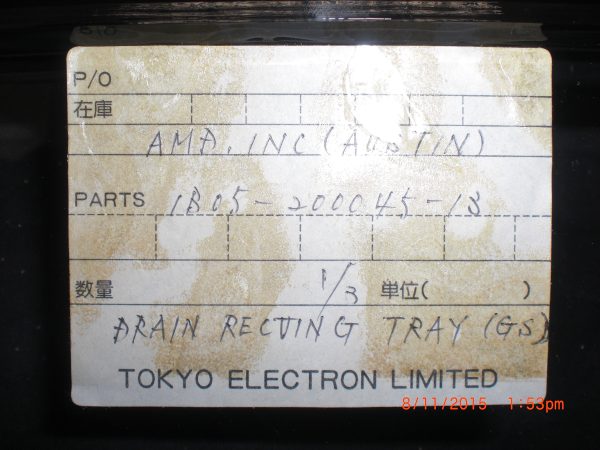 P/O
在庫
AMD. INC (AUSTIN)
PARTS 1B05-200045-13
数量 1/3 単位( )
DRAIN RECTING TRAY (GS)
TOKYO ELECTRON LIMITED
8/11/2015 1:53pm